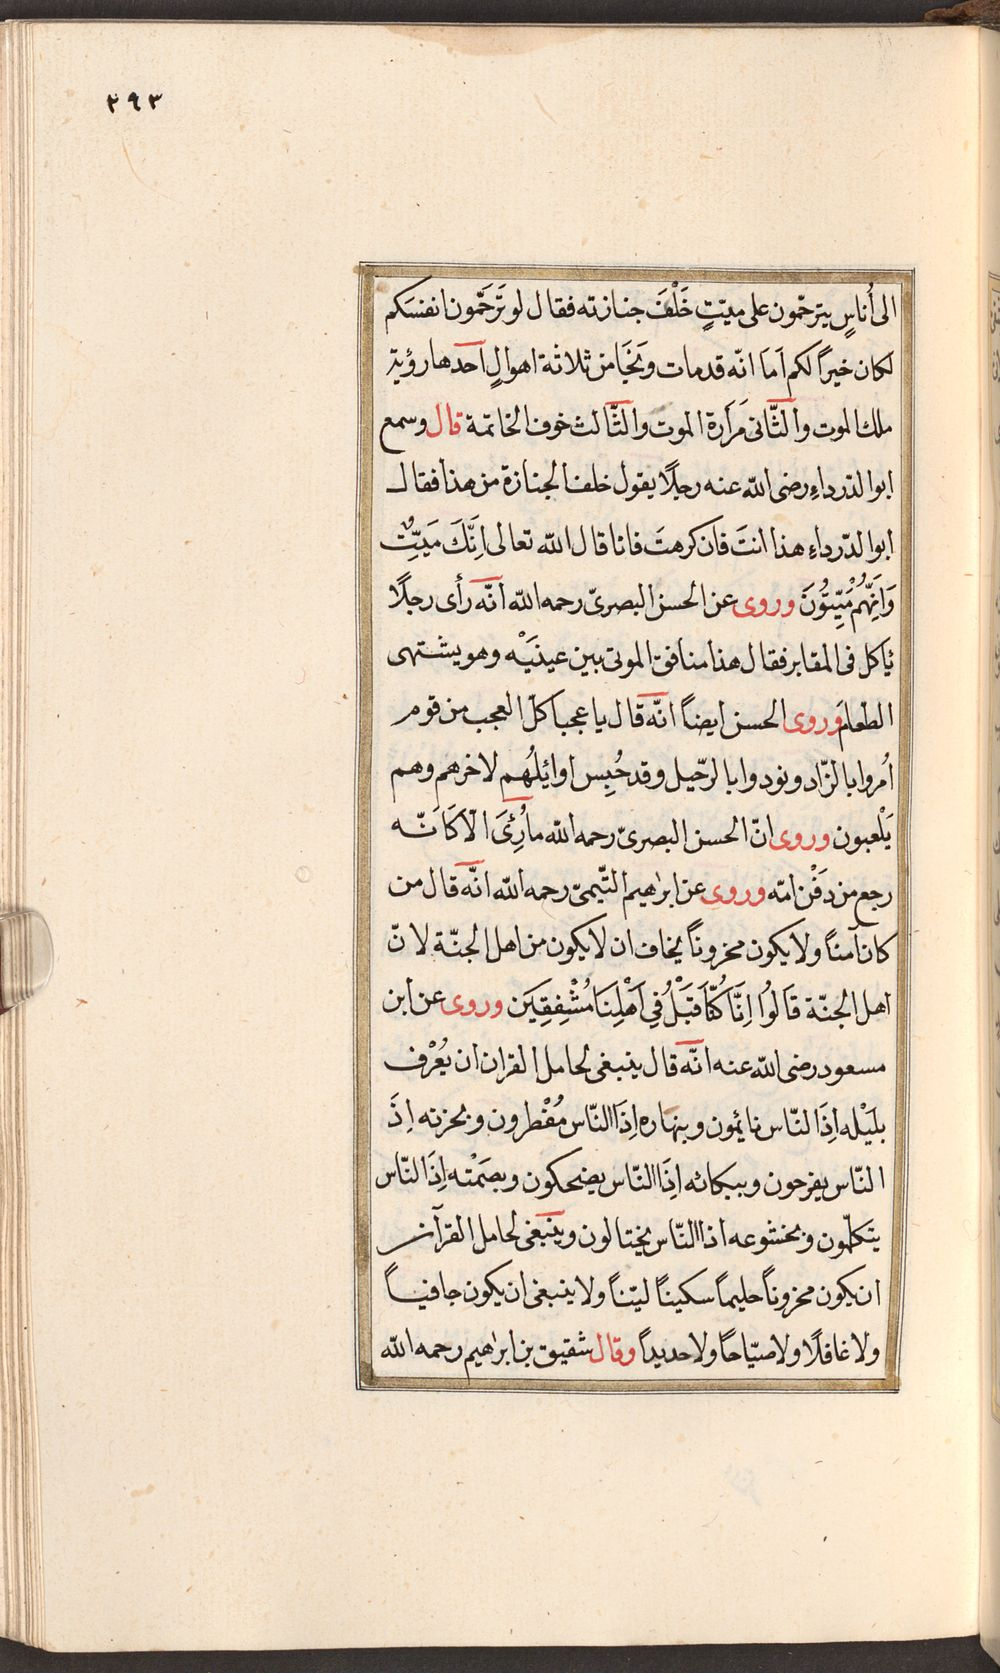 ٣٩٣
الى أُناسٍ يترحّمون على ميّتٍ خَلْفَ جنازته فقال لو تَرَحَّمون انفسَكم
لكان خيراً لكم اَمَا انّه قد مات ونَجَا من ثلاثة اهوالٍ احدها رؤية
ملك الموت والثّانى مَرَارة الموت والثّالث خوف الخاتمة قال وسمع
ابوالدّرداءِ رضى اللّه عنه رجلًا يقول خلف الجنازة من هذا فقال
ابوالدّرداءِ هذا انتَ فان كرهتَ فانا قال اللّه تعالى اِنَّكَ مَيِّتٌ
وَاِنَّهُمْ مَيِّتُونَ وروى عن الحسن البصرىّ رحمه اللّه انّه رأى رجلًا
ياكل فى المقابر فقال هذا منافق الموتى بين عينَيْه وهو يشتهى
الطعام وروى الحسن ايضاً انّه قال ياعجبا كلّ العجب من قوم
اُمروا بالزّاد ونودوا بالرّحيل وقد حُبِس اوائلُهُم لاخرهم وهم
يَلْعبون وروى انّ الحسن البصرىّ رحمه اللّه ما رُئِىَ الّا كَاَنّه
رجع من دَفْن امّه وروى عن ابرٰهيم التّيمىّ رحمه اللّه انّه قال من
كان آمناً ولا يكون محزوناً يخاف ان لا يكون من اهل الجنّة لانّ
اهل الجنّة قَالُوا اِنَّا كُنَّا قَبْلُ فِى اَهْلِنَا مُشْفِقِيَن وروى عن ابن
مسعود رضى اللّه عنه انّه قال ينبغى لحامل القران ان يُعْرف
بلَيْله اِذَا النّاس نائمون وبنهاره اِذَا النّاس مُفْطرون وبحزنه اِذَ
النّاس يفرحون وببكائه اِذَا النّاس يضحكون وبصَمْته اِذَا النّاس
يتكلّمون وبخشوعه اذا النّاس يختالون وينبغى لحامل القرآن
ان يكون محزوناً حليماً سكيناً ليّناً ولا ينبغى ان يكون جافياً
ولا غافلًا ولا صيّاحاً ولا حديداً وقال شقيق بن ابرٰهيم رحمه اللّه